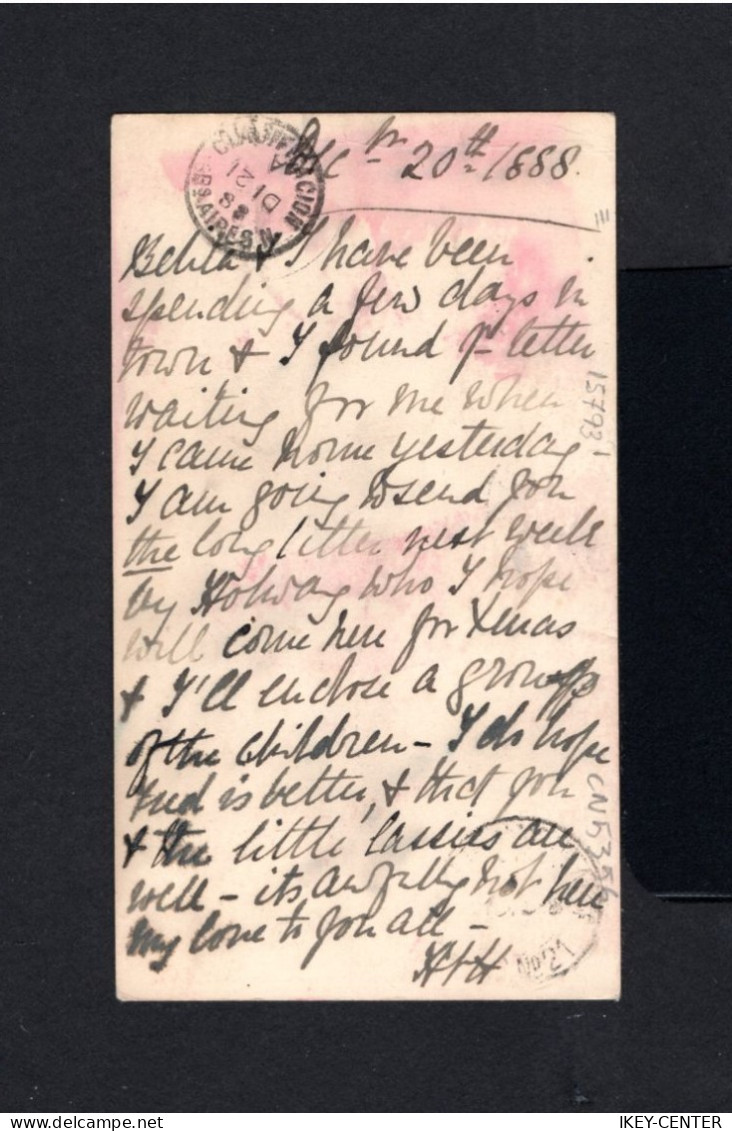 Dec<sup>br</sup> 20<sup>th</sup> 1888.
& I have been
spending a few days in
town & I found yr letter
waiting for me when
I came home yesterday
I am going to send you
the long letter next week
by who I hope
will come here for Xmas
& I'll enclose a group
of the children - I do hope
Fred is better, & that you
& the little lassies are
well - its awfully hot here
My love to you all -
15793
CN5356
No 21
IKEY-CENTER